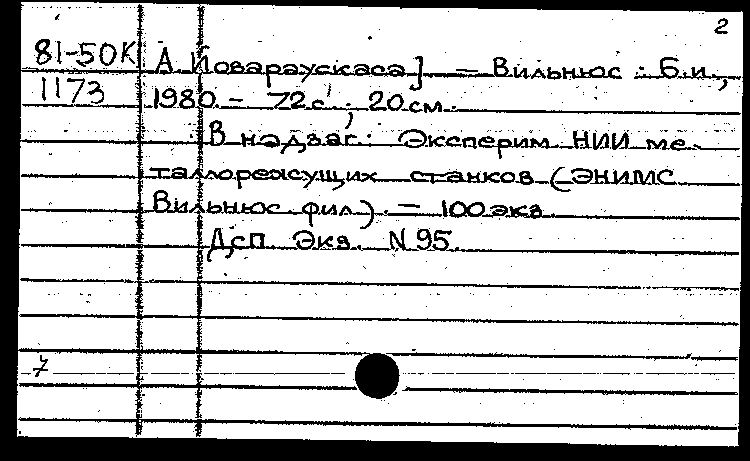 2
81-50К А. Йовараускаса]. — Вильнюс : Б.и.,
1173 1980. – 72 с.; 20 см.
В надзаг.: Эксперим. НИИ ме-
таллорежущих станков (ЭНИМС
Вильнюс. фил.). – 100 экз.
Дсп. Экз. N 95.
7